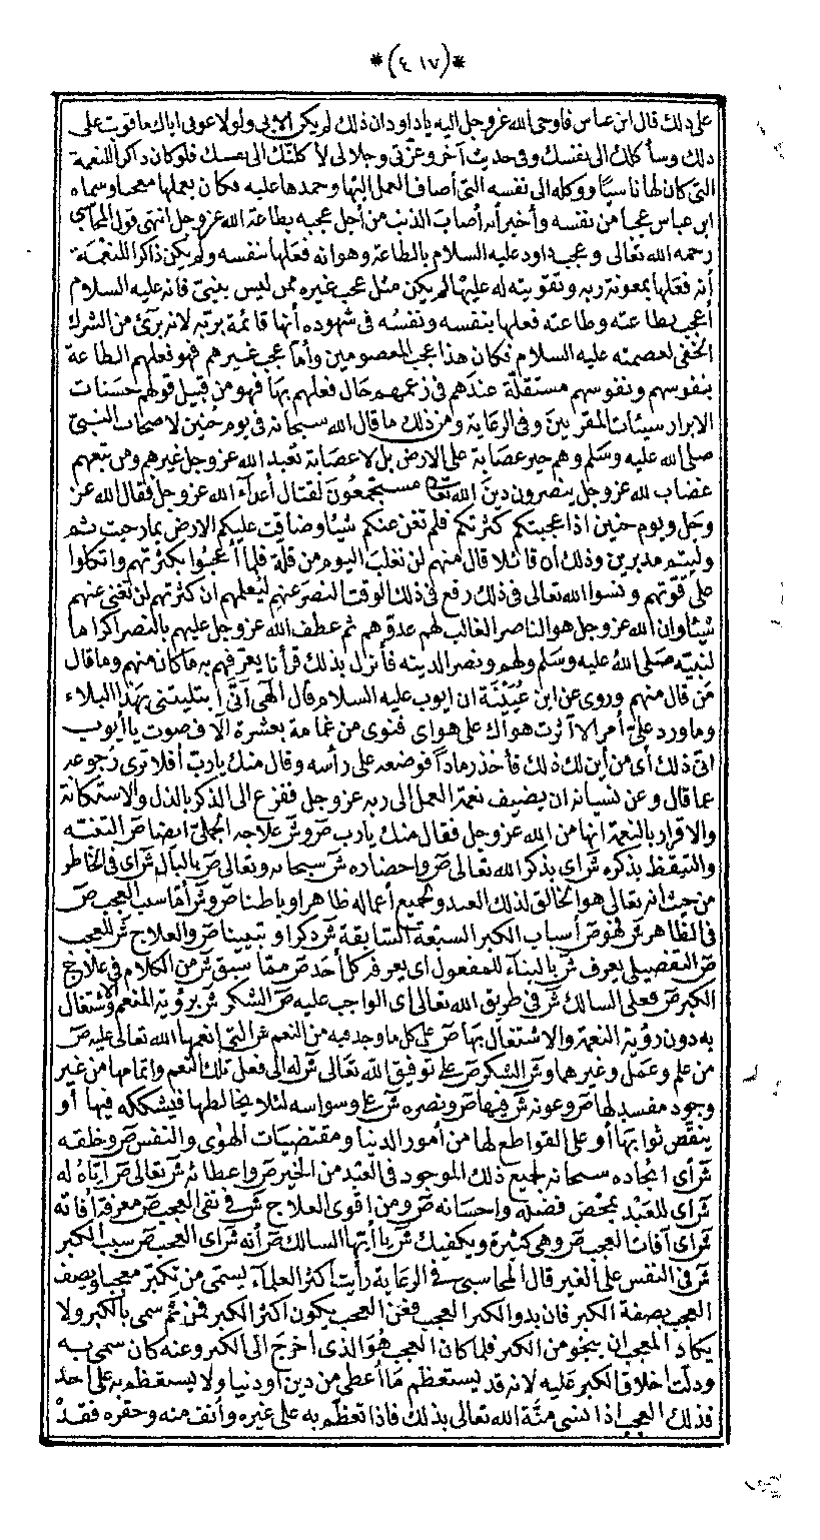 *(٤١٧)*
على ذلك قال ابن عباس فاوحى الله عز وجل اليه يا داود ان ذلك لم يكن الا بى ولولا عونى اياك ما قويت على
ذلك وسأكلك الى نفسك وفى حديث آخر وعزتى وجلالى لأكلنك الى نفسك فلو كان ذاكرا للنعمة
التى كان لها ناسيا ووكله الى نفسه التى أضاف العمل اليها وحمدها عليه فكان بعملها معجبا وسماه
ابن عباس عجبا من نفسه وأخبر أنه أصاب الذنب من أجل عجبه بطاعة الله عز وجل انتهى قول المحاسبى
رحمه الله تعالى وعجب داود عليه السلام بالطاعة وهو انه فعلها بنفسه ولم يكن ذاكرا للنعمة
أنه فعلها بمعونة ربه وتقويته له عليها لم يكن مثل عجب غيره ممن ليس بنبىّ فانه عليه السلام
أعجب بطاعته وطاعته فعلها بنفسه ونفسُه فى شهوده أنها قائمة بربّه لانه برئ من الشرك
الخفى لعصمته عليه السلام فكان هذا عجب المعصومين وأما عجب غيرهم فهو فعلهم الطاعة
بنفوسهم ونفوسهم مستقلّة عندهم فى زعمهم حال فعلهم بها فهو من قبيل قولهم حسنات
الابرار سيئات المقربين وفى الرعاية ومن ذلك ما قال الله سبحانه فى يوم حُنين لاصحاب النبىّ
صلى الله عليه وسلم وهم خير عصابة على الارض بل لا عصابة تعبد الله عز وجل غيرهم ومن تبعهم
غضاب لله عز وجل ينصرون دين الله تعالى مستجمعون لقتال أعداء الله عز وجل فقال الله عز
وجل ويوم حنين اذ اعجبتكم كثرتكم فلم تغن عنكم شيئا وضاقت عليكم الارض بما رحبت ثم
وليتم مدبرين وذلك أن قائلا قال منهم لن نغلب اليوم من قلة فلما أعجبُوا بكثرتهم واتكلوا
على قوتهم ونسوا الله تعالى فى ذلك رفع فى ذلك الوقت النصر عنهم ليُعلمهم ان كثرتهم لن تغنى عنهم
شيئا وان الله عز وجل هو الناصر الغالب لهم عدوّهم ثم عطف الله عز وجل عليهم بالنصر اكراما
لنبيّه صلى الله عليه وسلم ولهم ونصر الدينه فأنزل بذلك قرأنا يعرّفهم به ما كان منهم وما قال
مَن قال منهم وروى عن ابن عُيَيْنَة ان ايوب عليه السلام قال الهى أنّى ابتليتنى بهذا البلاء
وما ورد علىّ أمر الا آثرت هواك على هواى فنودى من غمامة بعشرة آلاف صوت يا أيوب
انى ذلك أى من أين لك ذلك فأخذ رماداً فوضعه على رأسه وقال منك يا ربّ أفلا ترى رُجوعه
عما قال وعن نسيانه ان يضيف نعمة العمل الى ربه عز وجل ففزع الى الذكر بالذل والاستكانة
والاقرار بالنعمة انها من الله عز وجل فقال منك يا رب ص و ش علاجه الجملىّ ايضا ص التنبه
والتيقظ بذكره ش أى بذكر الله تعالى ص واحضاره ش سبحانه وتعالى ص بالبال ش أى فى الخاطر
من حيث انه تعالى هو الخالق لذلك العبد ولجميع أعماله ظاهرا وباطنا ص و ش أما سبب العجب ص
فى الظاهر ش فهو ص أسباب الكبر السبعة السابقة ش ذكرا وتبيينا ص والعلاج ش للعجب
ص التفصيلى يعرف ش بالبناء للمفعول اى يعرفه كل أحد ص مما سبق ش من الكلام فى علاج
الكبر ص فعلى السالك ش فى طريق الله تعالى أى الواجب عليه ص الشكر ش برؤية المنعم والاشتغال
به دون رؤية النعمة والاشتغال بها ص على كل ما وجد فيه من النعم ش التى انعمها الله تعالى عليه ص
من علم وعمل وغيرهما و ش الشكر ص على توفيق الله تعالى ش له الى فعل تلك النعم واتمامها من غير
وجود مفسد لها ص وعونه ش فيها ص ونصره ش على وسواسه لئلا يخالطها فيشككه فيها أو
ينقص ثوابها أو على القواطع لها من أمور الدنيا ومقتضيات الهوى والنفس ص وخلقه
ش أى ايجاده سبحانه لجميع ذلك الموجود فى العبد من الخير ص واعطائه ش تعالى ص اياه له
ش أى للعبد بمحض فضله واحسانه ص ومن اقوى العلاج ش فى نفى العجب ص معرفة آفاته
ش أى آفات العجب ص وهى كثيرة ويكفيك ش يا أيها السالك ص أنه ش أى العجب ص سبب الكبر
ش فى النفس على الغير قال المحاسبى فى الرعاية رأيت اكثر العلماء يسمى من تكبّر معجبا ويصف
العجب بصفة الكبر فان بدو الكبر العجب فعن العجب يكون اكثر الكبر فمن ثَمّ سمى بالكبر ولا
يكاد المعجب ان ينجو من الكبر فلما كان العجب هو الذى اخرج الى الكبر وعنه كان سمى به
ودلت اخلاق الكبر عليه لانه قد يستعظم ما أعطى من دين أو دنيا ولا يستعظم به على أحد
فذلك العجب اذا نسى منّة الله تعالى بذلك فاذا تعظّم به على غيره وأنف منه وحقره فقد